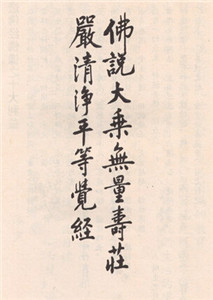 佛説大乘無量壽莊
嚴清淨平等覺経